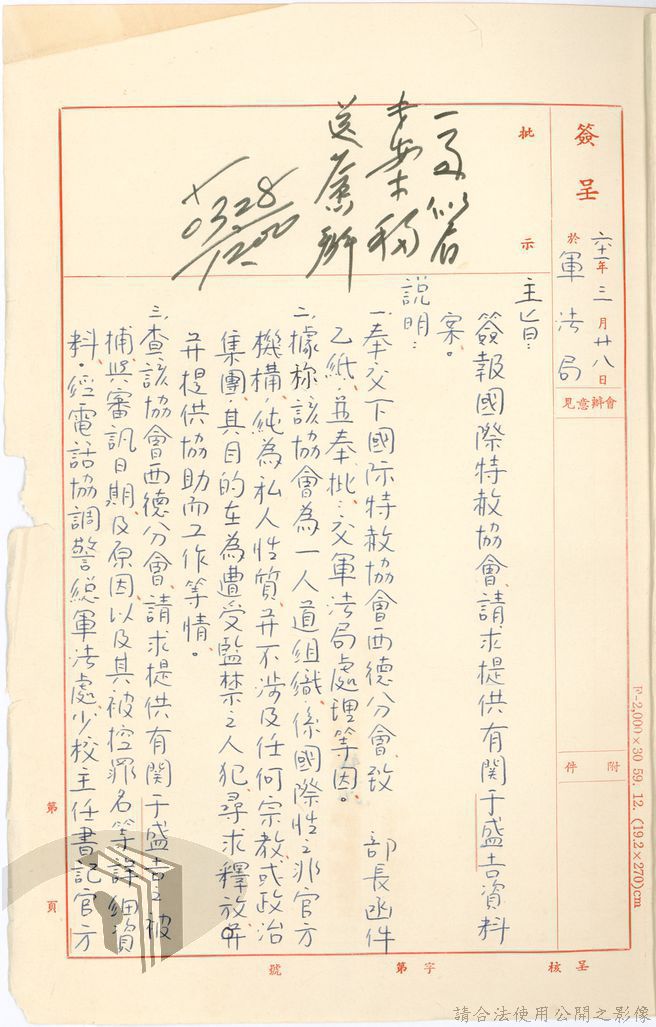 簽呈
六十一年三月廿八日
於軍法局
會辦意見
附件
批示
一、可、似宜
本案移
送𢊍辦
0328
1200
主旨：
簽報國際特赦協會、請求提供有関于盛吉資料
案。
説明：
一、奉交下國际特赦協會西德分會、致 部長函件
乙紙、並奉批：交軍法局處理等因。
二、據称該協會為一人道組織、係國際性之非官方
機構、純為私人性質、并不涉及任何宗教、或政治
集團、其目的在為遭受監禁之人犯、尋求釋放、
并提供協助而工作等情。
三、查該協會西德分會、請求提供有関于盛吉之被
捕與審訊日期、及原因、以及其被控罪名等詳細資
料。經電話協調警総軍法處、少校主任書記官方
第 頁
呈核
字第 號
F-2,000×30 59. 12. (19.2×270)cm
請合法使用公開之影像